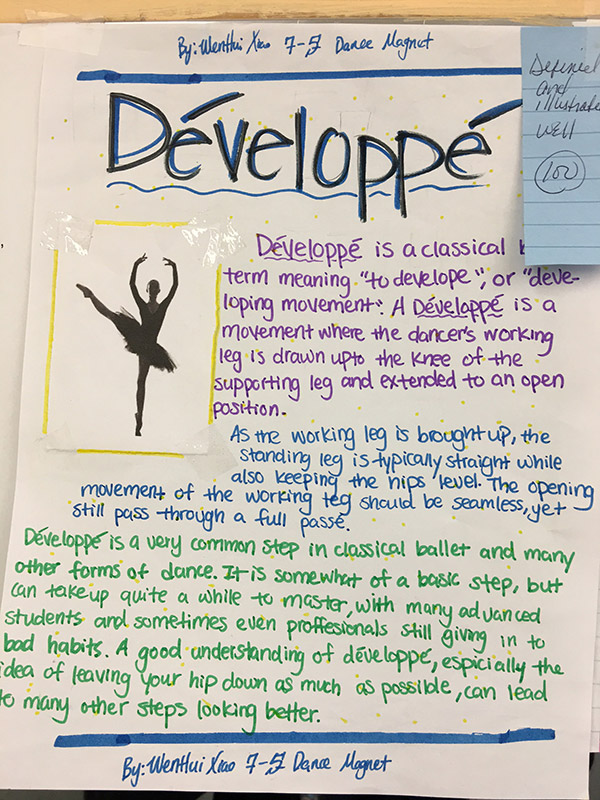 By: WenHui Xiao 7-5 Dance Magnet
Defined
and
illustrated
well
100
Développé
Développé is a classical
term meaning "to develope", or "deve-
loping movement". A Développé is a
movement where the dancer's working
leg is drawn upto the knee of the
supporting leg and extended to an open
position.
As the working leg is brought up, the
standing leg is typically straight while
also keeping the hips level. The opening
movement of the working leg should be seamless, yet
still pass through a full passé.
Développé is a very common step in classical ballet and many
other forms of dance. It is somewhat of a basic step, but
can take up quite a while to master, with many advanced
students and sometimes even proffesionals still giving in to
bad habits. A good understanding of développé, espicially the
idea of leaving your hip down as much as possible, can lead
to many other steps looking better.
By: WenHui Xiao 7-5 Dance Magnet